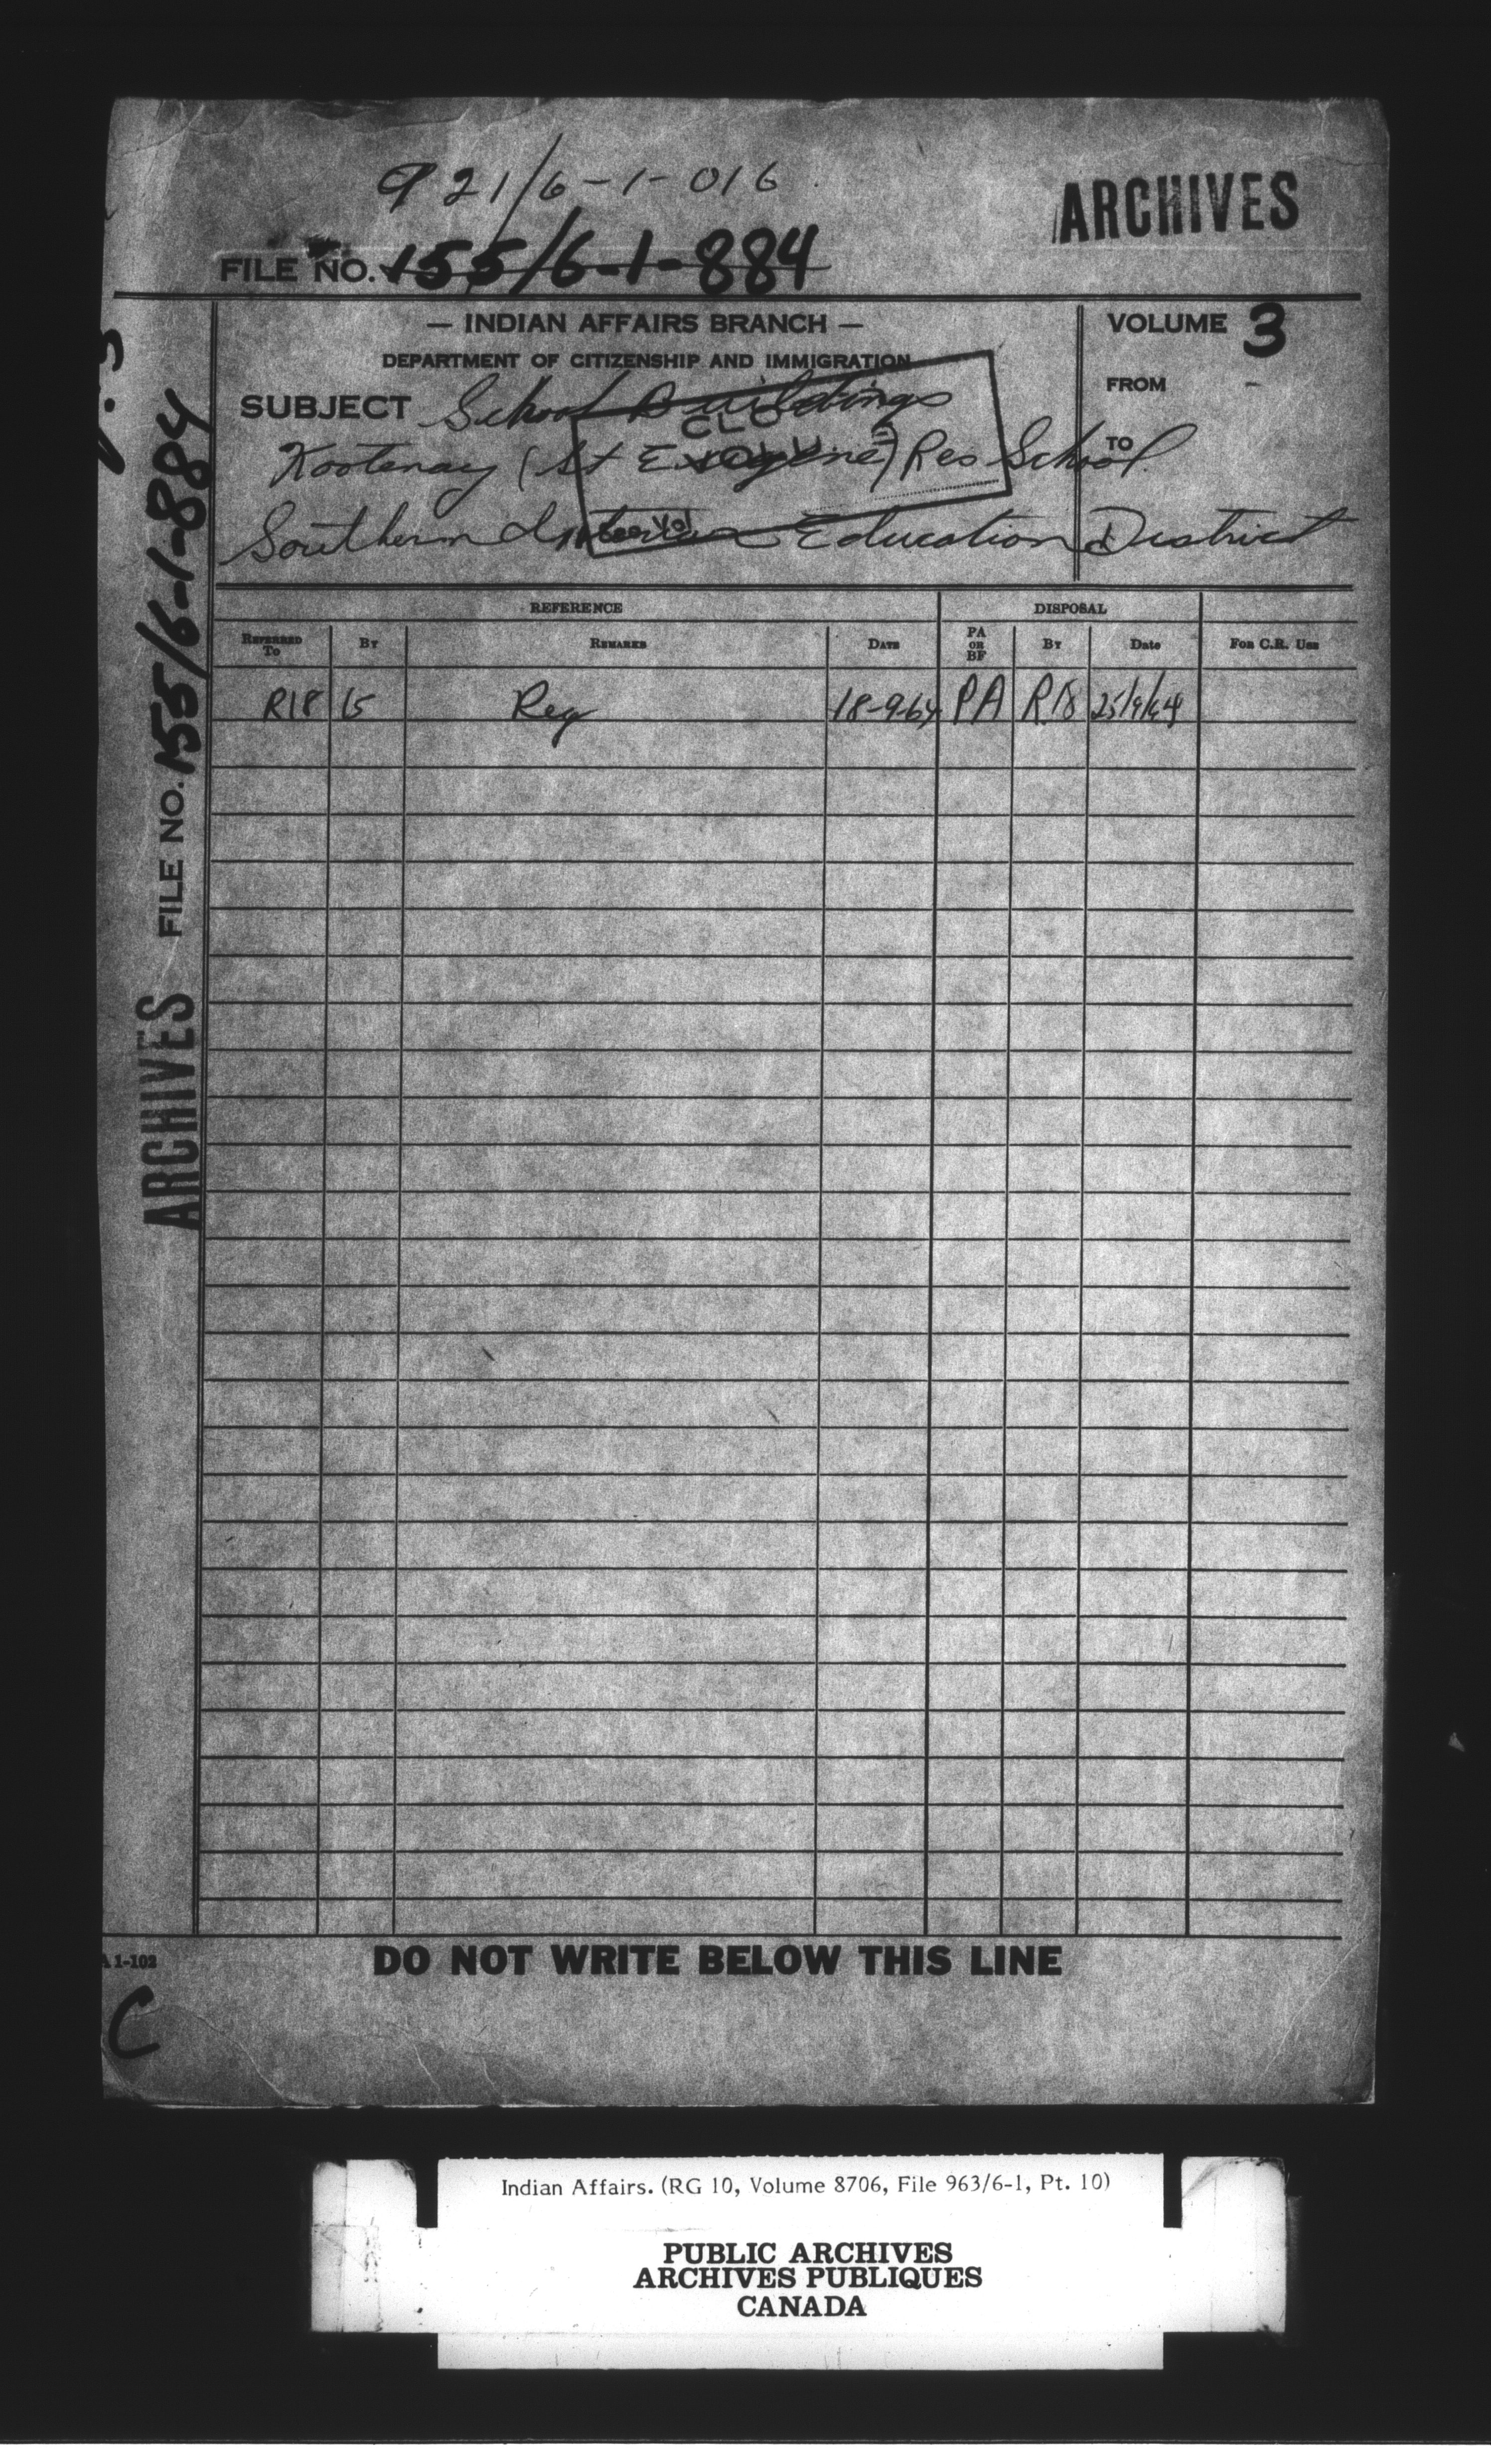 921/6-1-016
ARCHIVES
FILE NO. 155/6-1-884
— INDIAN AFFAIRS BRANCH —
DEPARTMENT OF CITIZENSHIP AND IMMIGRATION
VOLUME 3
FROM -
TO
SUBJECT School Buildings
Kootenay (St Eugene) Res School
Southern Interior Education District
CLO
Vol
REFERENCE DISPOSAL
REFERRED TO BY REMARKS DATE PA OR BF BY Date FOR C.R. USE
R18 15 Reg 18-9-64 PA R18 25/9/64
V.3
FILE NO. 155/6-1-884
ARCHIVES
A 1-102
DO NOT WRITE BELOW THIS LINE
C
Indian Affairs. (RG 10, Volume 8706, File 963/6-1, Pt. 10)
PUBLIC ARCHIVES
ARCHIVES PUBLIQUES
CANADA